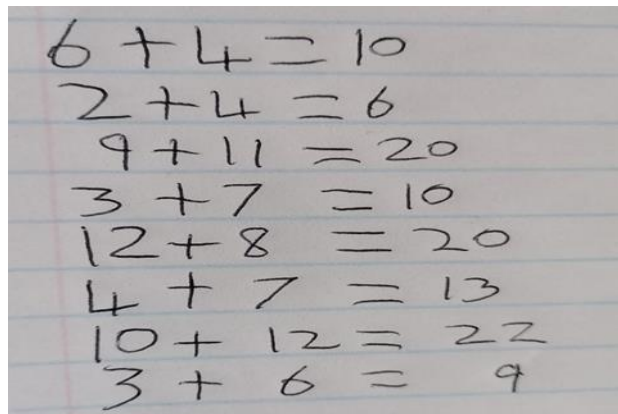 6 + 4 = 10
2 + 4 = 6
9 + 11 = 20
3 + 7 = 10
12 + 8 = 20
4 + 7 = 13
10 + 12 = 22
3 + 6 = 9